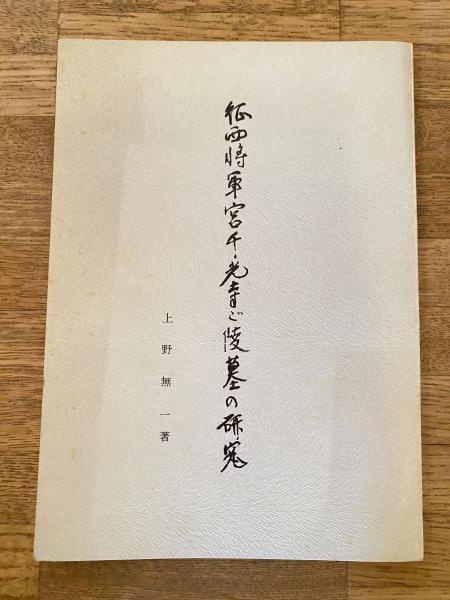 征西将軍宮千光寺ご陵墓の研究
上野無一著